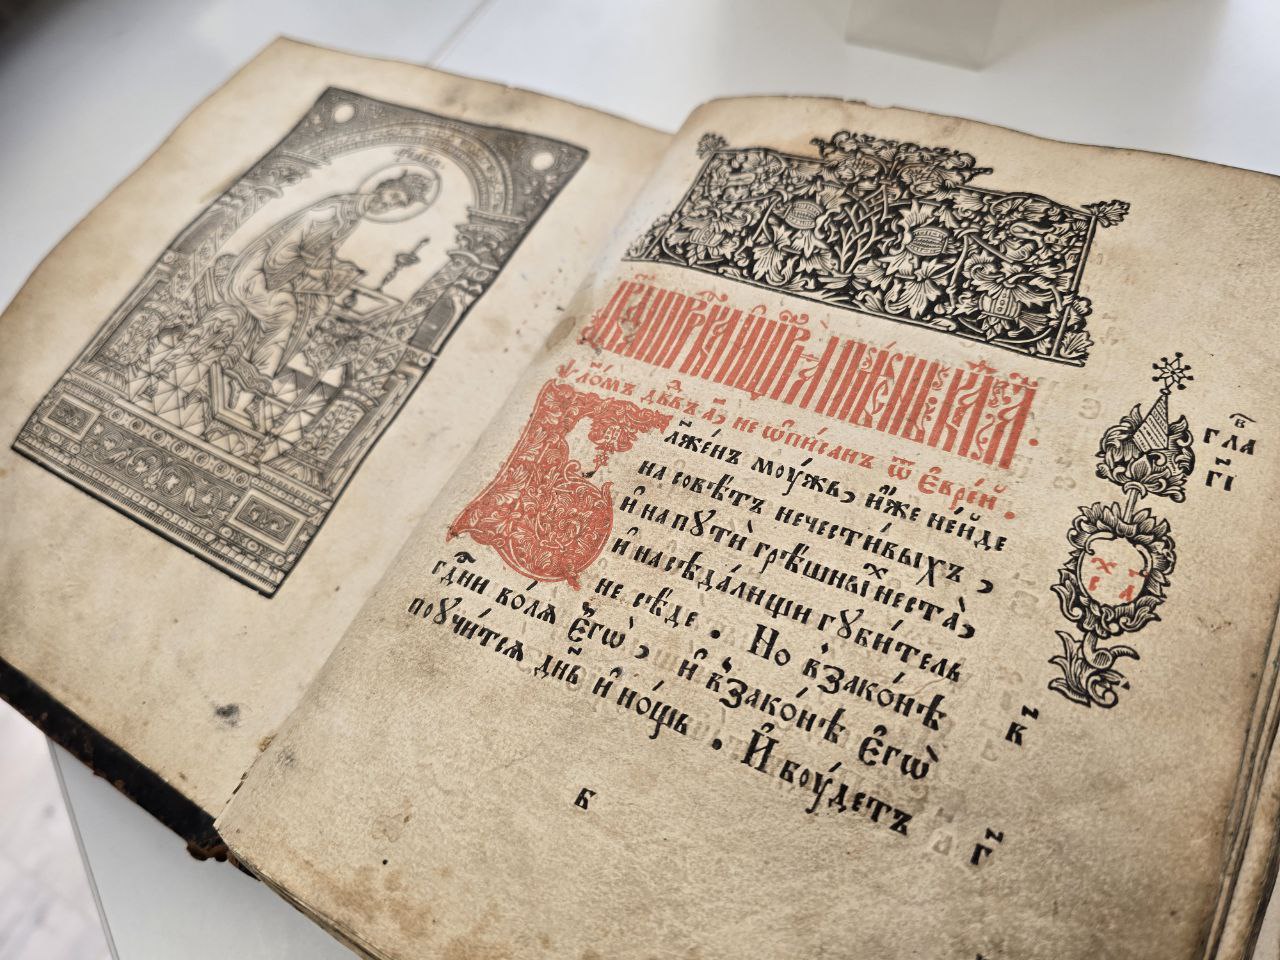 ѱало́мъ дв҃дъ, а҃. не ѡ҆пи́санъ ѿ є҆врє́й.
Бл҃же́нъ моу́жь, и҆́же не и҆́де
на совѣ́тъ нечести́выхъ,
и҆ на пꙋтѝ грѣ́шныⷯ не ста̀,
и҆ на сѣда́лищи гꙋби́тель
не сѣ́де. Но в̾зако́нѣ
гдⷭ҇ни во́лѧ є҆гѡ̀, и҆ в̾зако́нѣ є҆гѡ̀
поучи́тсѧ дн҃ь и҆ но́щь. И҆ боу́детъ
в҃
гла
г҃і
х
с л
в҃
г҃
Б